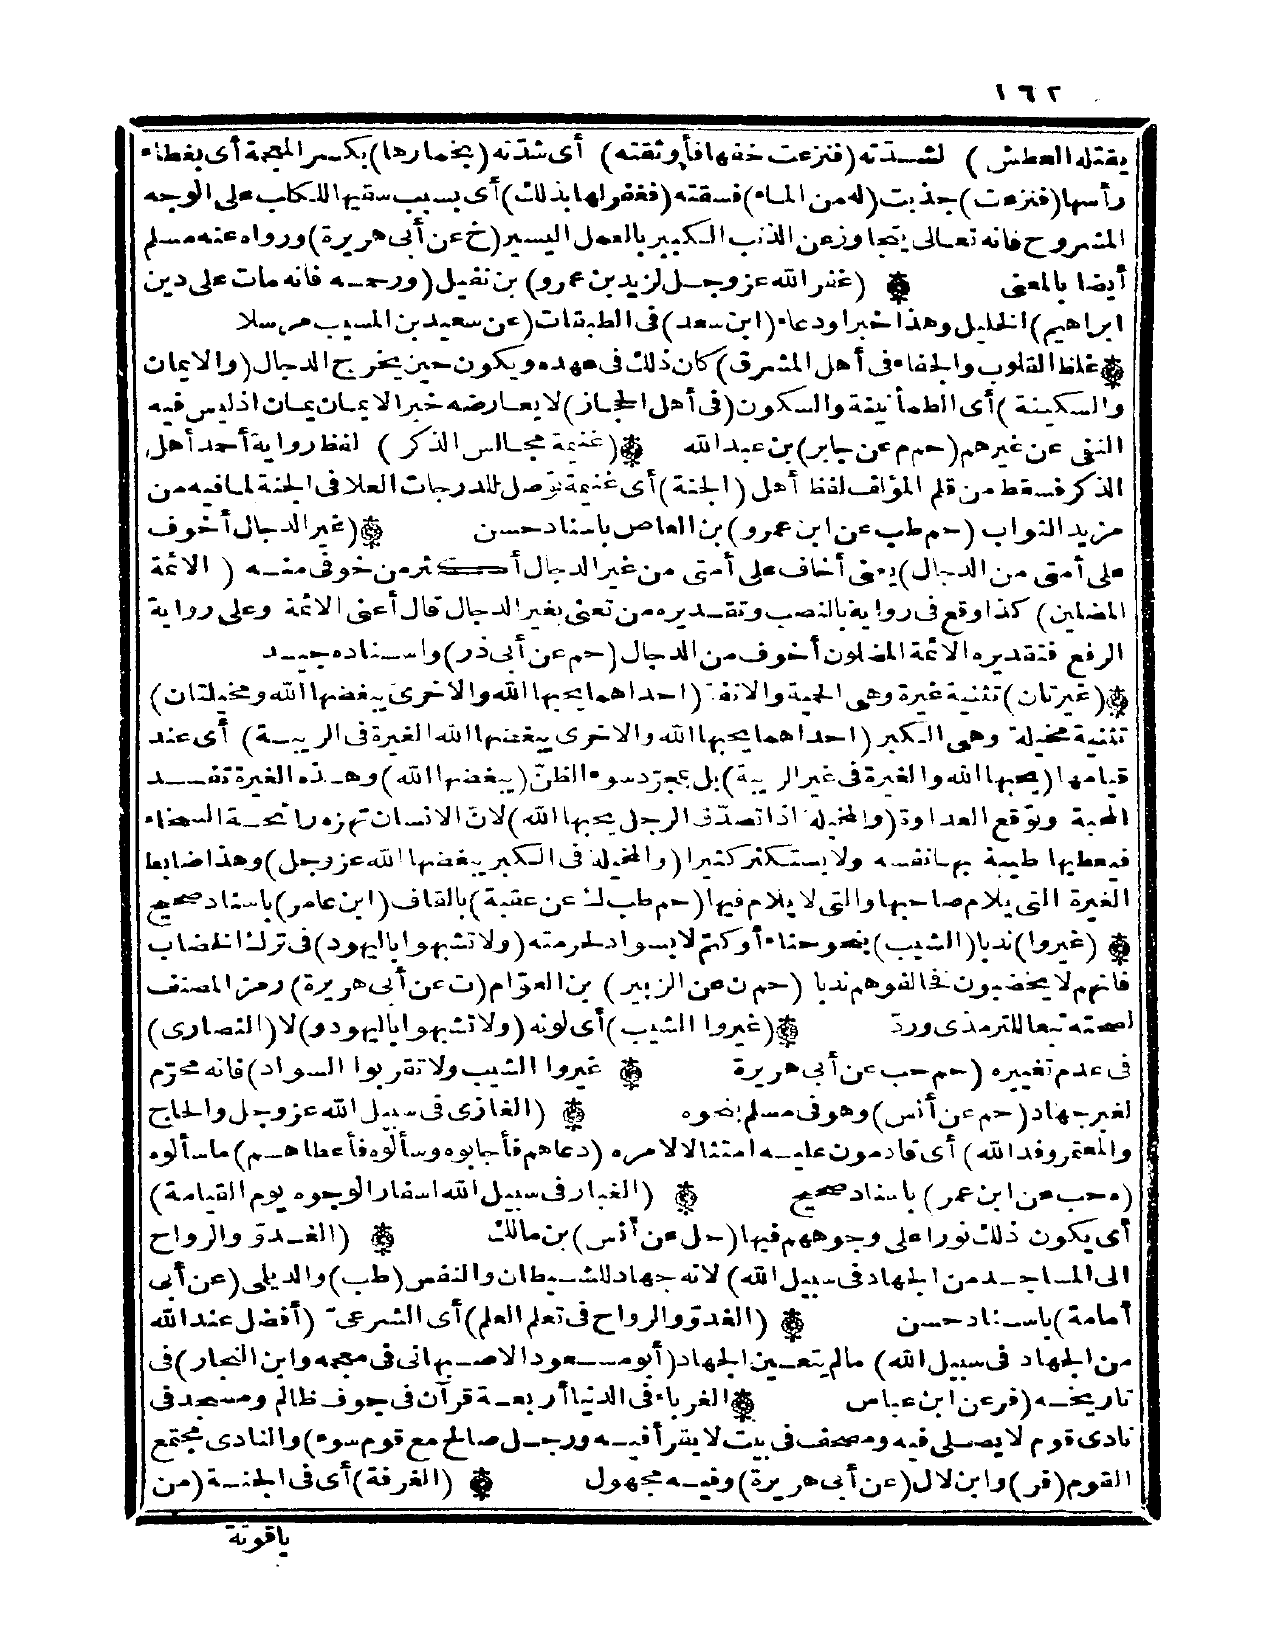 ١٦٢
يقتله العطش) لشدته (فنزعت خفها فأوثقته) أى شدته (بخمارها) بكسر المعجمة أى بغطاء
رأسها (فنزعت) جذبت (له من الماء) فسقته (فغفر لها بذلك) أى بسبب سقيها للكلب على الوجه
المشروح فانه تعالى يتجاوز عن الذنب الكبير بالعمل اليسير (خ عن أبى هريرة) ورواه عنه مسلم
أيضا بالمعنى (غفر الله عز وجل لزيد بن عمرو) بن نفيل (ورحمه فانه مات على دين
ابراهيم) الخليل وهذا خبر اودعاء (ابن سعد) فى الطبقات (عن سعيد بن المسيب مرسلا
غلظ القلوب والجفاء فى أهل المشرق) كان ذلك فى عهده ويكون حين يخرج الدجال (والايمان
والسكينة) أى الطمأنينة والسكون (فى أهل الحجاز) لا يعارضه خبر الايمان يمان اذ ليس فيه
النفى عن غيرهم (حم م عن جابر) بن عبد الله (غنيمة مجالس الذكر) لفظ رواية أحمد أهل
الذكر فسقط من قلم المؤلف لفظ أهل (الجنة) أى غنيمة توصل للدرجات العلا فى الجنة لما فيه من
مزيد الثواب (حم طب عن ابن عمرو) بن العاص باسناد حسن (غير الدجال أخوف
على أمتى من الدجال) يعنى أخاف على أمتى من غير الدجال أكثر من خوفى منه (الائمة
المضلين) كذا وقع فى رواية بالنصب وتقديره من تعنى بغير الدجال قال أعنى الائمة وعلى رواية
الرفع فتقديره الائمة المضلون أخوف من الدجال (حم عن أبى ذر) واسناده جيد
(غيرتان) تثنية غيرة وهى الحمية والانفة (احداهما يحبها الله والاخرى يبغضها الله ومخيلتان)
تثنية مخيلة وهى الكبر (احداهما يحبها الله والاخرى يبغضها الله الغيرة فى الريبة) أى عند
قيامها (يحبها الله والغيرة فى غير الريبة) بل بمجرد سوء الظن (يبغضها الله) وهذه الغيرة تفسد
المحبة وتوقع العداوة (والمخيلة اذا تصدق الرجل يحبها الله) لان الانسان تهزه رائحة السخاء
فيعطيها طيبة بها نفسه ولا يستكثر كثيرا (والمخيلة فى الكبر يبغضها الله عز وجل) وهذا ضابط
الغيرة التى يلام صاحبها والتى لا يلام فيها (حم طب ك عن عقبة) بالقاف (ابن عامر) باسناد صحيح
(غيروا) ندبا (الشيب) بنحو حناء أو كتم لا بسواد لحرمته (ولا تشبهوا باليهود) فى ترك الخضاب
فانهم لا يخضبون فخالفوهم ندبا (حم ن عن الزبير) بن العوام (ت عن أبى هريرة) رمز المصنف
لصحته تبعا للترمذى ورد (غيروا الشيب) أى لونه (ولا تشبهوا باليهود و) لا (النصارى)
فى عدم تغييره (حم حب عن أبى هريرة غيروا الشيب ولا تقربوا السواد) فانه محرّم
لغير جهاد (حم عن أنس) وهو فى مسلم بنحوه (الغازى فى سبيل الله عز وجل والحاج
والمعتمر وفد الله) أى قادمون عليه امتثالا لامره (دعاهم فأجابوه وسألوه فأعطاهم) ما سألوه
(ه حب عن ابن عمر) باسناد صحيح (الغبار فى سبيل الله اسفار الوجوه يوم القيامة)
أى يكون ذلك نورا على وجوههم فيها (حل عن أنس) بن مالك (الغدو والرواح
الى المساجد من الجهاد فى سبيل الله) لانه جهاد للشيطان والنفس (طب) والديلى (عن أبى
أمامة) باسناد حسن (الغدو والرواح فى تعلم العلم) أى الشرعى (أفضل عند الله
من الجهاد فى سبيل الله) مالم يتعين الجهاد (أبو مسعود الاصبهانى فى معجمه وابن النجار) فى
تاريخه (فر عن ابن عباس الغرباء فى الدنيا أربعة قرآن فى جوف ظالم ومسجد فى
نادى قوم لا يصلى فيه ومصحف فى بيت لا يقرأ فيه ورجل صالح مع قوم سوء) والنادى مجتمع
القوم (فر) وابن لال (عن أبى هريرة) وفيه مجهول (الغرفة) أى فى الجنة (من
ياقوتة